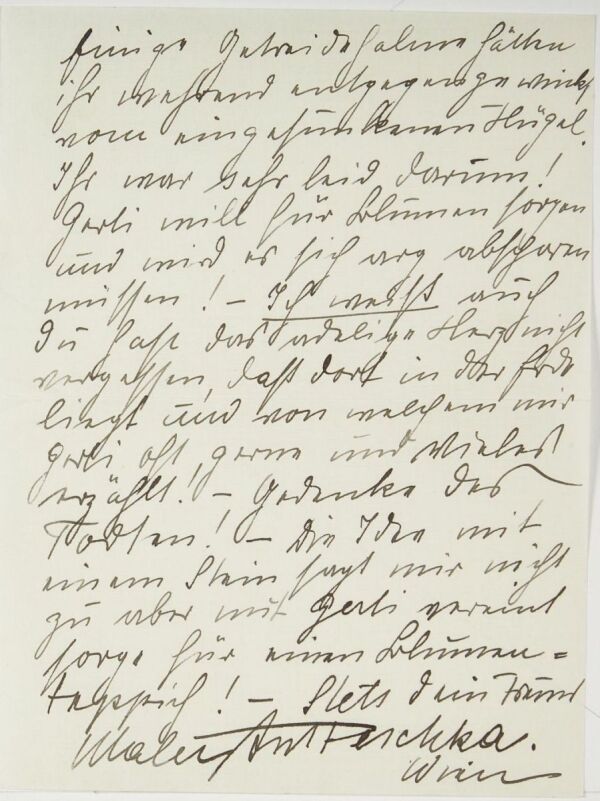 Einige Getreidehalme hätten
ihr während entgegengewinkt
vom eingesunkenen Hügel.
Ihr war sehr leid darum!
Gerti will für Blumen sorgen
und wird es sich arg absparen
müssen! – Ich weiß auch
Du hast das adelige Herz nicht
vergessen, daß dort in der Erde
liegt und von welchem mir
Gerti oft, gerne und Vieles
erzählt! – Gedenke des
Todten! – Die Idee mit
einem Stein sagt mir nicht
zu aber mit Gerti vereint
sorge für einen Blumen=
teppich! – Stets dein Freund
Maler
Wien